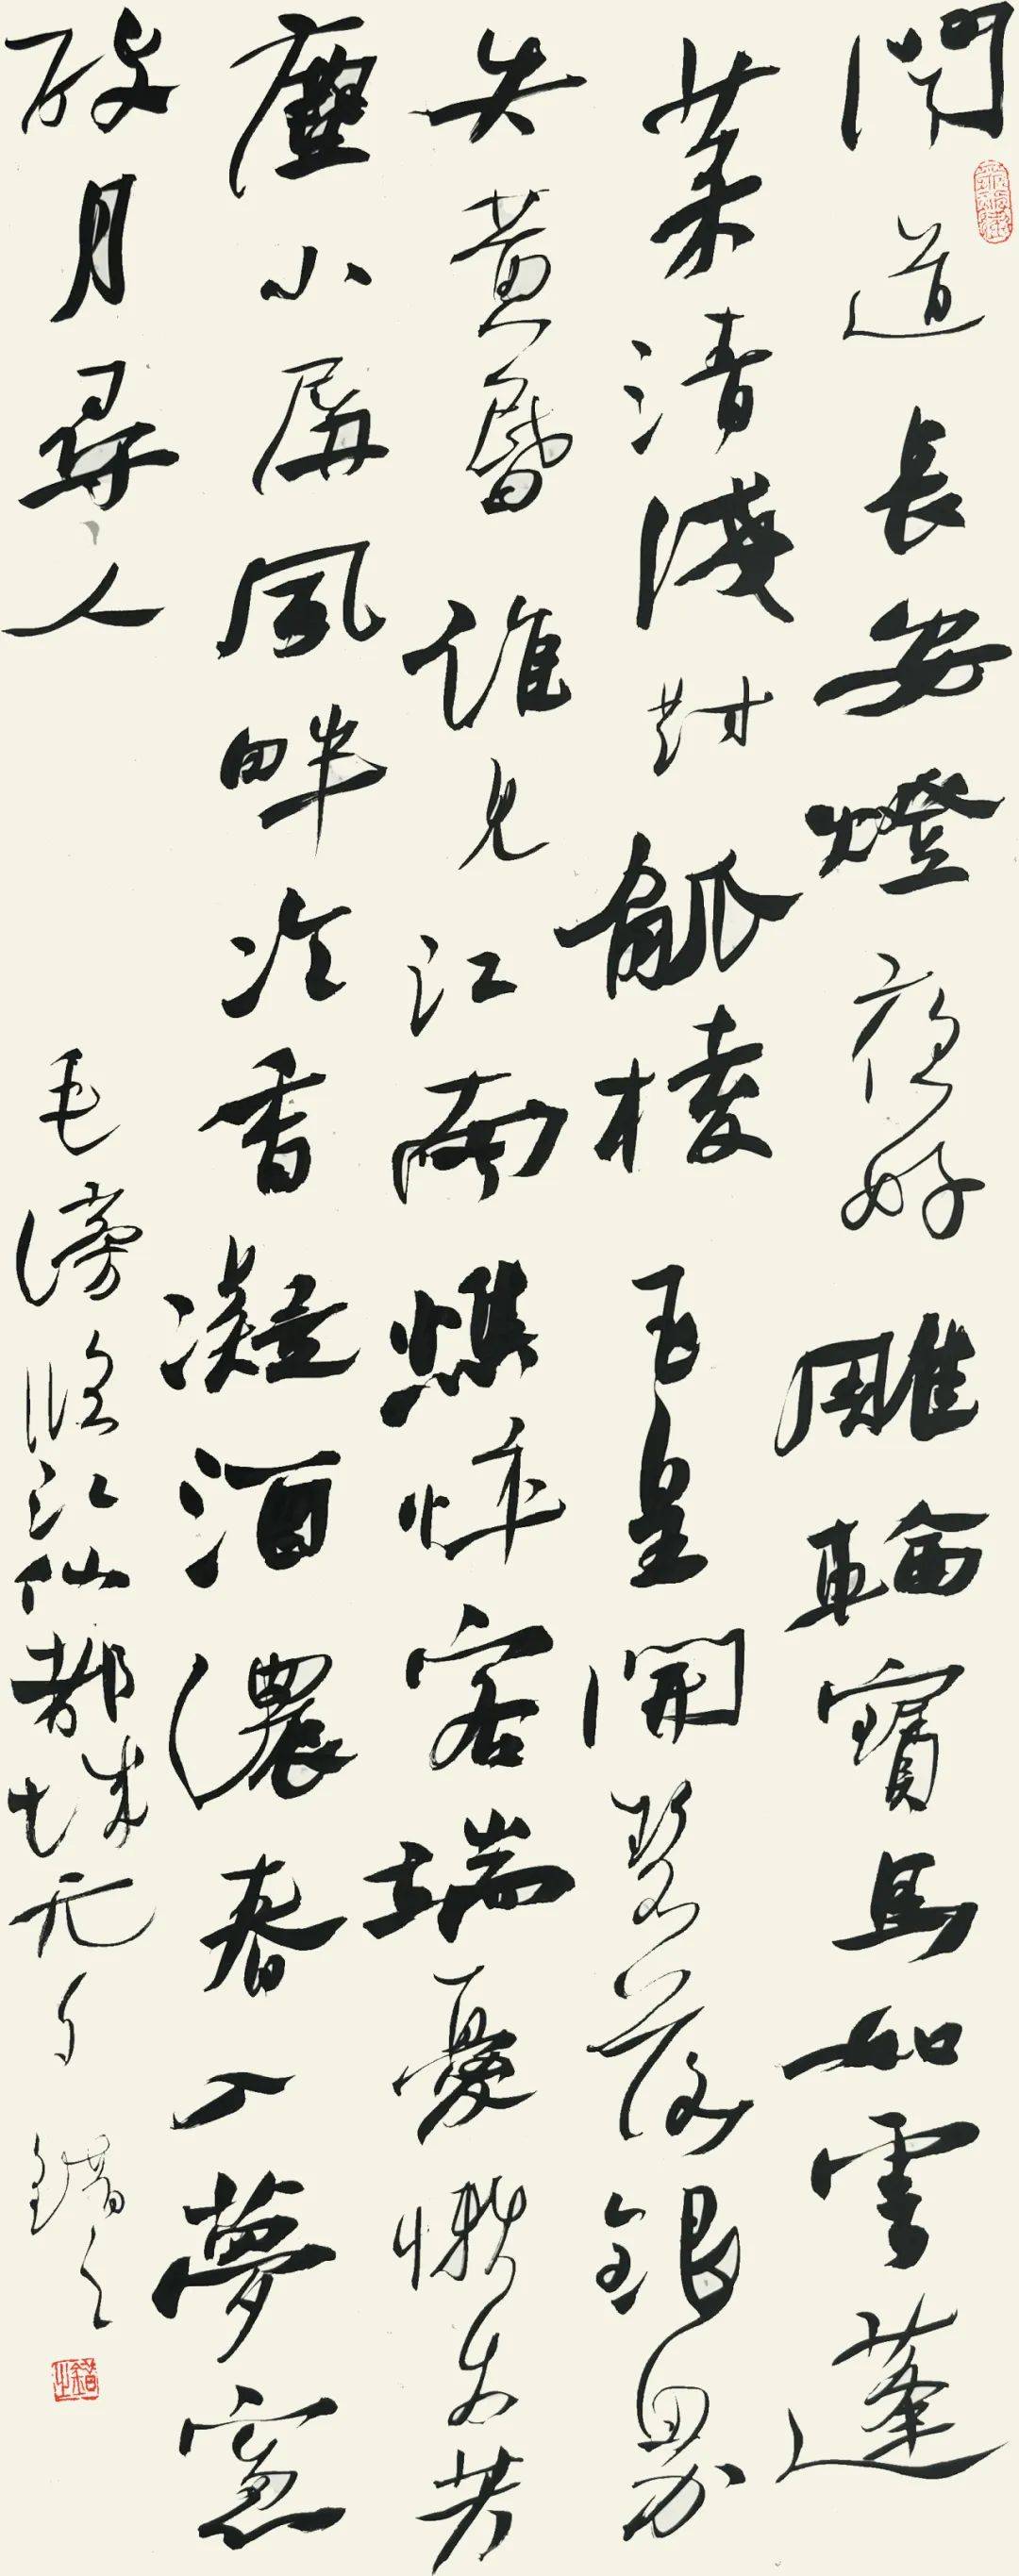 聞道長安燈夜好雕輪寶馬如雲蓬
萊清淺對觚棱玉皇開碧落銀界
失黃昏誰見江南憔悴客端憂懶步芳
塵小屏風畔冷香凝酒濃春入夢窗
破月尋人
毛滂臨江仙都城元夕 錯之